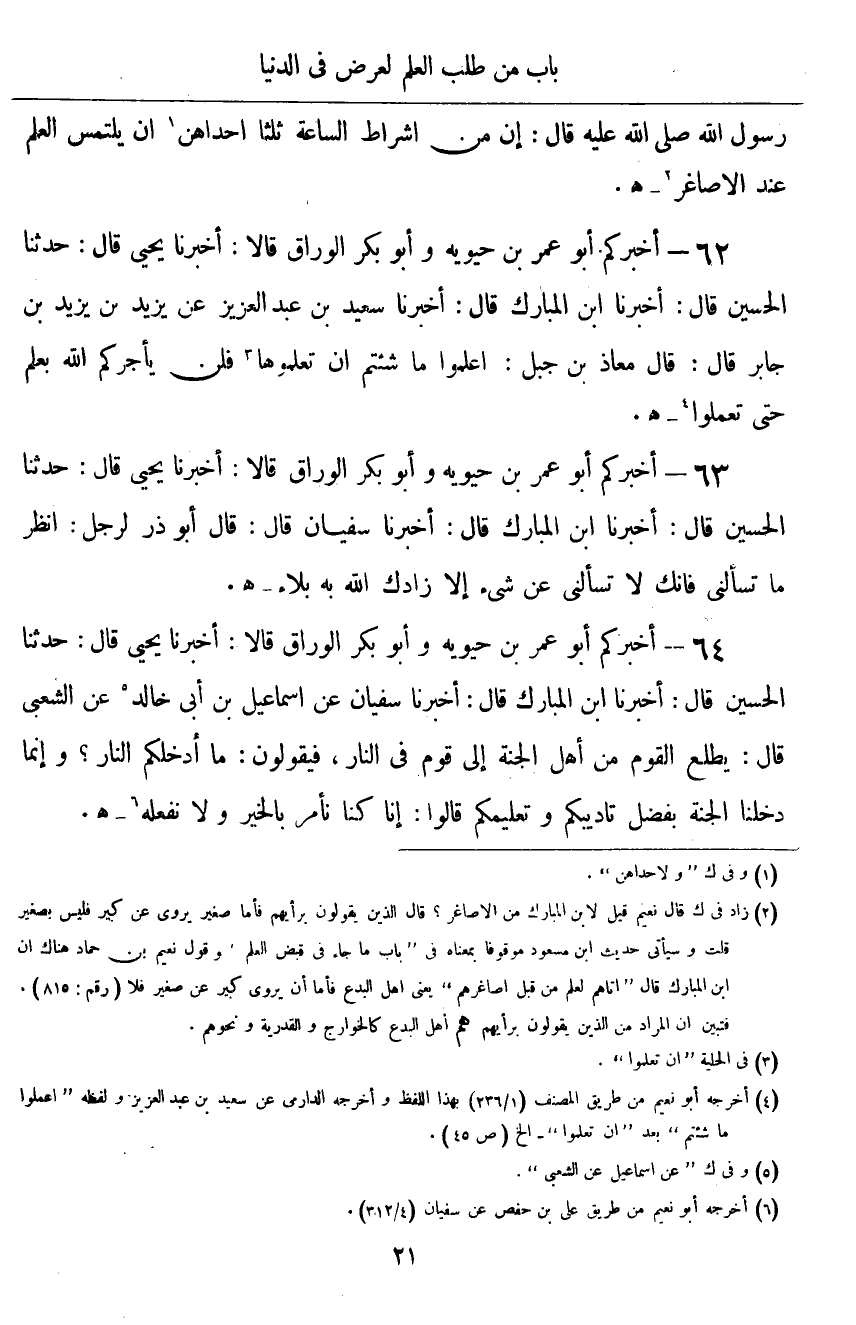 باب من طلب العلم لعرض فى الدنيا
رسول الله صلى الله عليه قال : إن من اشراط الساعة ثلثا احداهن١ ان يلتمس العلم
عند الاصاغر٢ ـ ه .
٦٢ – أخبركم أبو عمر بن حيويه و أبو بكر الوراق قالا : أخبرنا يحيى قال : حدثنا
الحسين قال : أخبرنا ابن المبارك قال : أخبرنا سعيد بن عبد العزيز عن يزيد بن يزيد بن
جابر قال : قال معاذ بن جبل : اعلموا ما شئتم ان تعلموها٣ فلن يأجركم الله بعلم
حتى تعملوا٤ ـ ه .
٦٣ – أخبركم أبو عمر بن حيويه و أبو بكر الوراق قالا : أخبرنا يحيى قال : حدثنا
الحسين قال : أخبرنا ابن المبارك قال : أخبرنا سفيان قال : قال أبو ذر لرجل : انظر
ما تسألنى فانك لا تسألنى عن شىء إلا زادك الله به بلاء ـ ه .
٦٤ – أخبركم أبو عمر بن حيويه و أبو بكر الوراق قالا : أخبرنا يحيى قال : حدثنا
الحسين قال : أخبرنا ابن المبارك قال : أخبرنا سفيان عن اسماعيل بن أبى خالد٥ عن الشعبى
قال : يطلع القوم من أهل الجنة إلى قوم فى النار ، فيقولون : ما أدخلكم النار ؟ و إنما
دخلنا الجنة بفضل تاديبكم و تعليمكم قالوا : إنا كنا نأمر بالخير و لا نفعله٦ ـ ه .
(١) و فى ك " و لاحداهن " .
(٢) زاد فى ك قال نعيم قيل لابن المبارك من الاصاغر ؟ قال الذين يقولون برأيهم فأما صغير يروى عن كبير فليس بصغير
قلت و سيأتى حديث ابن مسعود موقوفا بمعناه فى " باب ما جاء فى قبض العلم ' و قول نعيم بن حماد هناك ان
ابن المبارك قال " اتاهم لعلم من قبل اصاغرهم " يعنى اهل البدع فأما أن يروى كبير عن صغير فلا ( رقم : ٨١٥ ) .
فتبين ان المراد من الذين يقولون برأيهم هم أهل البدع كالخوارج و القدرية و نحوهم .
(٣) فى الحلية " ان تعلموا " .
(٤) أخرجه أبو نعيم من طريق المصنف (٢٣٦/١) بهذا اللفظ و أخرجه الدارمى عن سعيد بن عبد العزيز و لفظه " اعملوا
ما شئتم " بعد " ان تعلموا " ـ الخ ( ص ٤٥ ) .
(٥) و فى ك " عن اسماعيل عن الشعبى " .
(٦) أخرجه أبو نعيم من طريق على بن حفص عن سفيان (٣١٢/٤) .
٢١